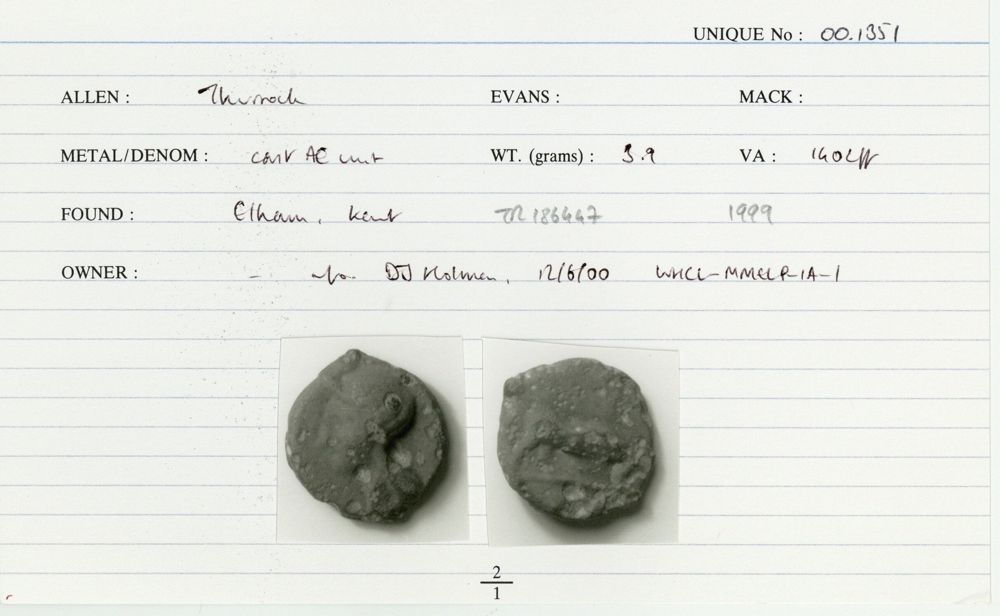 UNIQUE No : 00.1351
ALLEN : Thurrock EVANS : MACK :
METAL/DENOM : cast AE unit WT. (grams) : 3.9 VA : 1402ff
FOUND : Elham, Kent TR 186447 1999
OWNER : - DJ Holman, 12/6/00
2
1